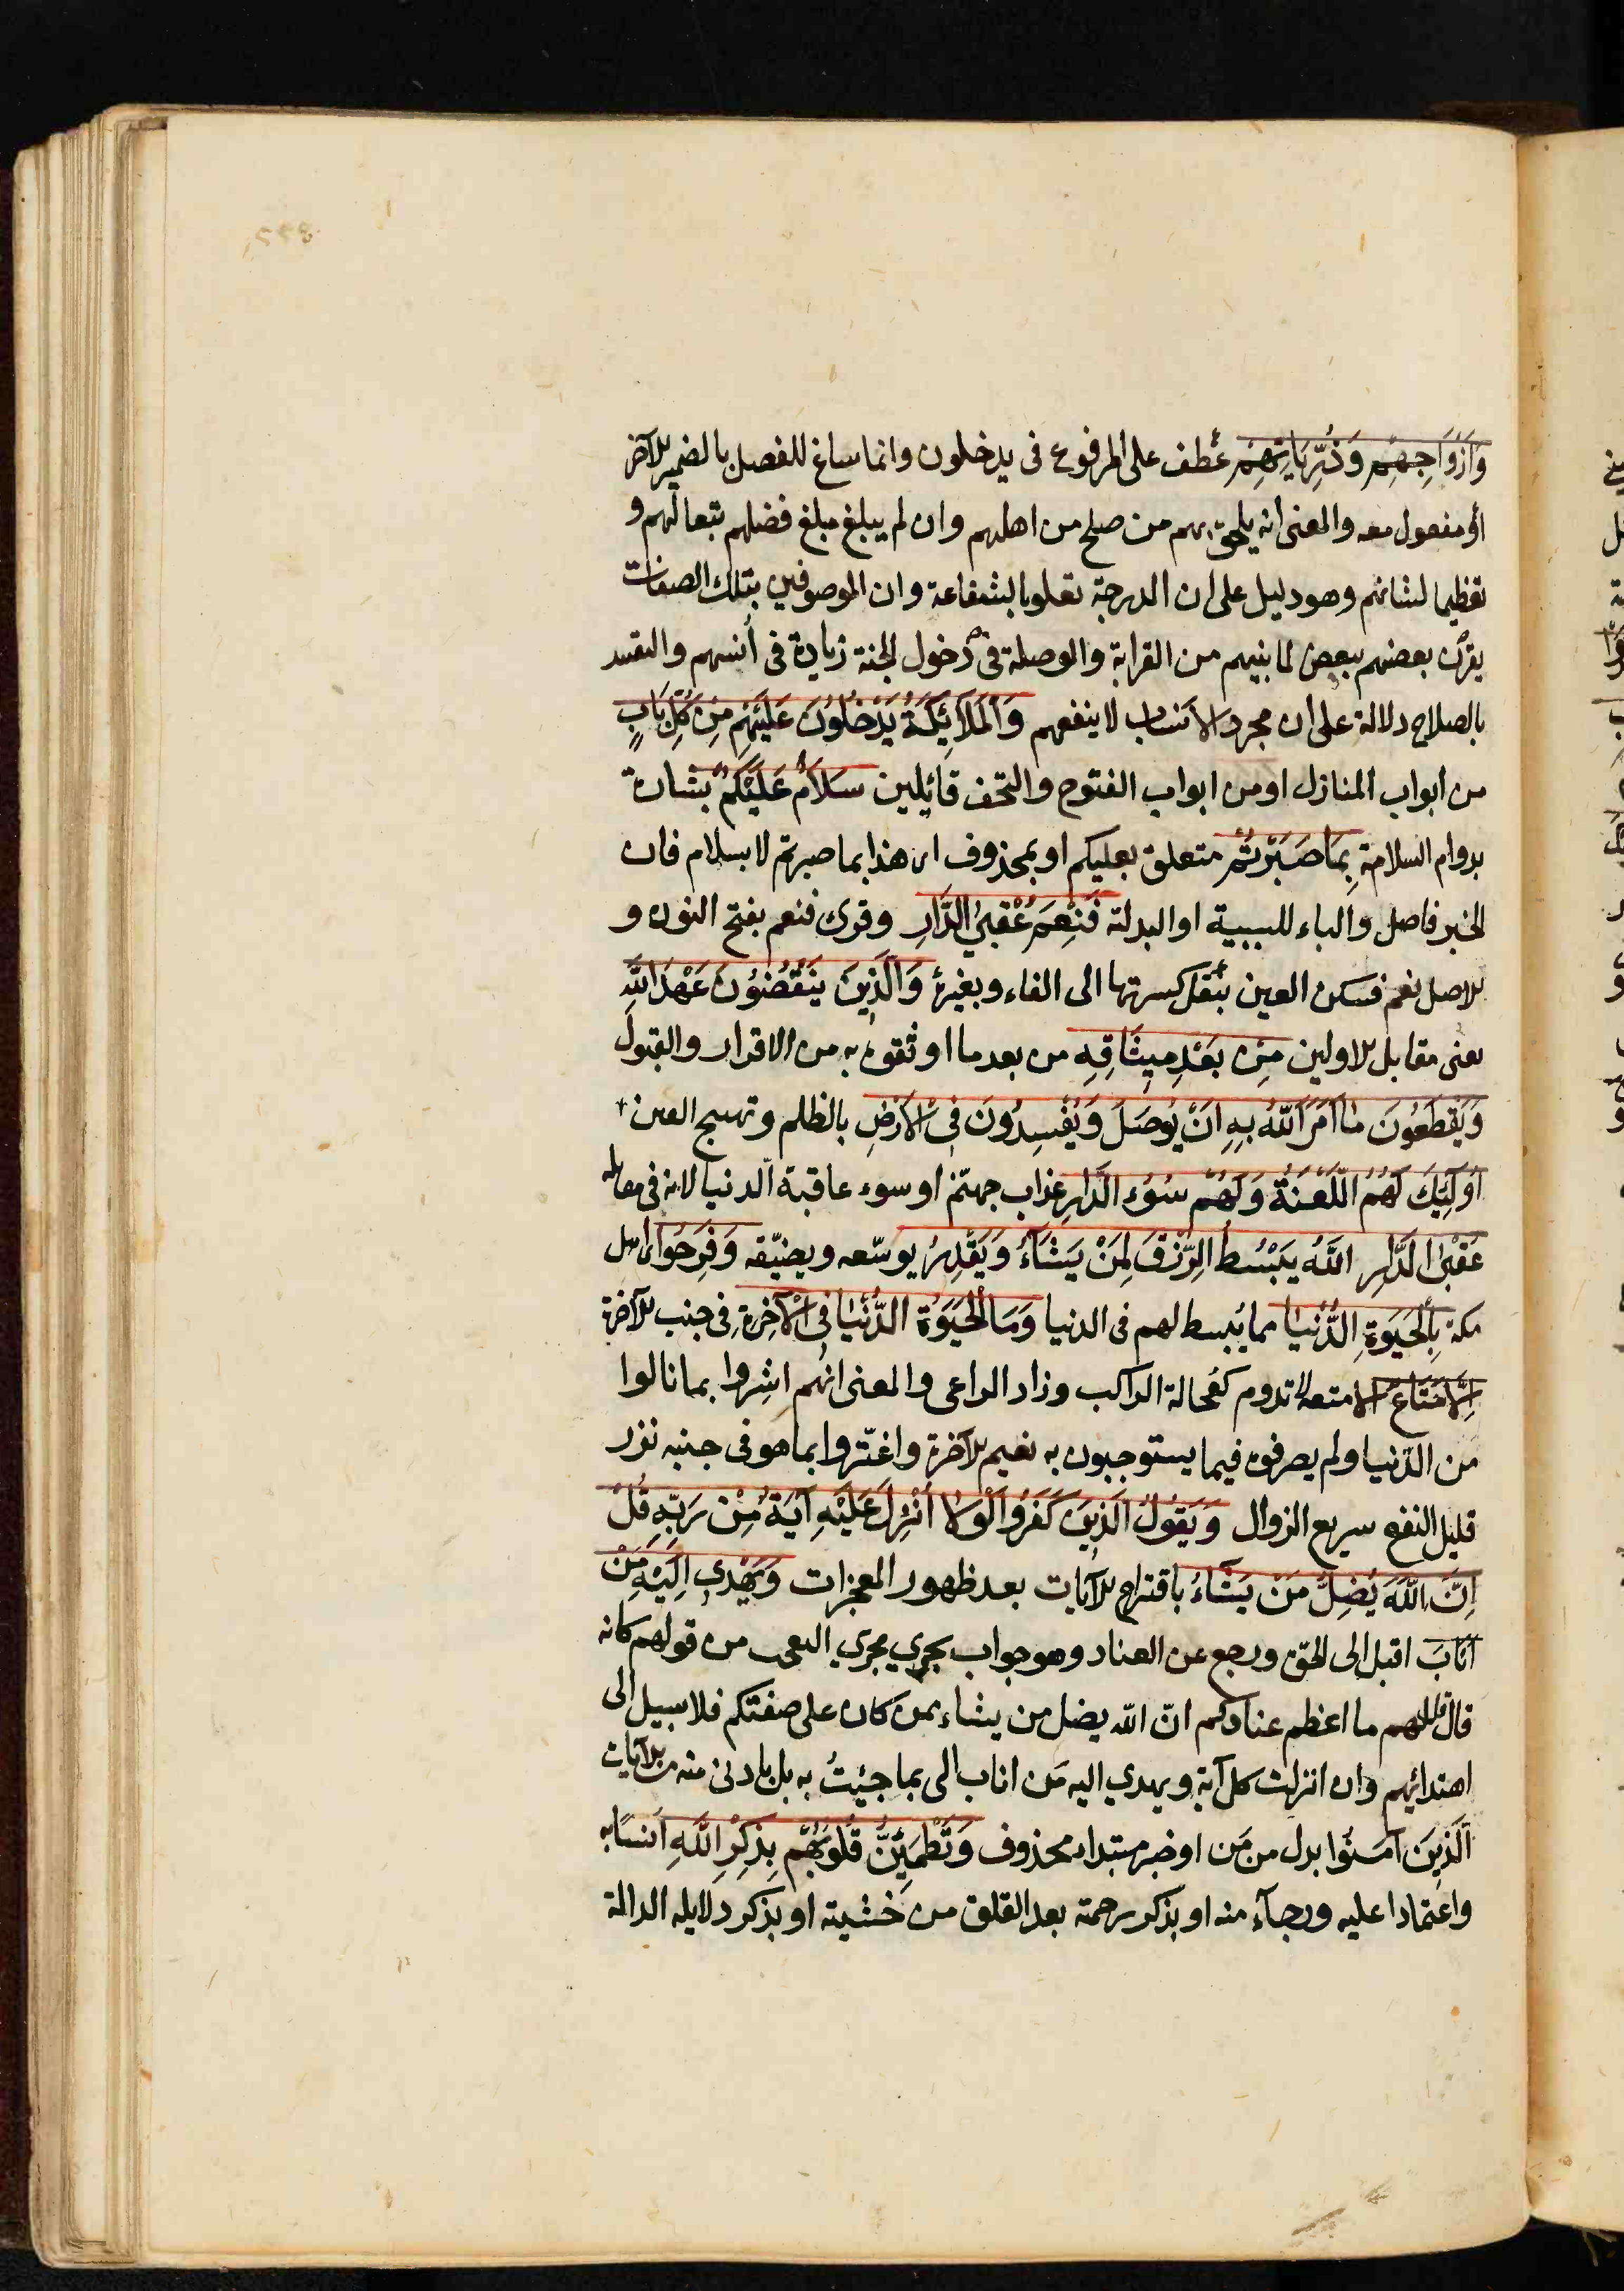 وَاَزْوَاجِهِمْ وَذُرِّيَّاتِهِمْ عطف على المرفوع فى يدخلون وانما ساغ للفصل بالضمير الآخر
او مفعول معه والمعنى انه يلحق بهم من صلح من اهلهم وان لم يبلغ مبلغ فضلهم تبعا لهم و
تعظيما لشانهم وهو دليل على ان الدرجة تعلو بالشفاعة وان الموصوفين بتلك الصفات
يقرن بعضهم ببعض لما بينهم من القرابة والوصلة فى دخول الجنة زيادة فى أنسهم والتقييد
بالصلاح دلالة على ان مجرد الانساب لا ينفعهم وَالْمَلَائِكَةُ يَدْخُلُونَ عَلَيْهِمْ مِنْ كُلِّ بَابٍ
من ابواب المنازل او من ابواب الفتوح والتحف قائلين سَلَامٌ عَلَيْكُمْ بشارة
بدوام السلامة بِمَا صَبَرْتُمْ متعلق بعليكم او بمحذوف اى هذا بما صبرتم لا بسلام فان
الخبر فاصل والباء للسببية او البدلة فَنِعْمَ عُقْبَى الدَّارِ وقرئ فنعم بفتح النون و
الاصل نعم فسكن العين بنقل كسرتها الى الفاء وبغيره وَالَّذِينَ يَنْقُضُونَ عَهْدَ اللَّهِ
يعنى مقابل الاولين مِنْ بَعْدِ مِيثَاقِهِ من بعد ما اوثقوه به من الاقرار والقبول
وَيَقْطَعُونَ مَا اَمَرَ اللَّهُ بِهِ اَنْ يُوصَلَ وَيُفْسِدُونَ فِى الْاَرْضِ بالظلم وتهييج الفتن
اُولٰئِكَ لَهُمُ اللَّعْنَةُ وَلَهُمْ سُوءُ الدَّارِ عذاب جهنّم او سوء عاقبة الدنيا لانه فى مقابلة
عُقْبَى الدَّارِ اللَّهُ يَبْسُطُ الرِّزْقَ لِمَنْ يَشَاءُ وَيَقْدِرُ يوسّعه ويضيّقه وَفَرِحُوا اى اهل
مكة بِالْحَيٰوةِ الدُّنْيَا بما يُبسط لهم فى الدنيا وَمَا الْحَيٰوةُ الدُّنْيَا فِى الْاٰخِرَةِ فى جنب الآخرة
اِلَّا مَتَاعٌ الا متعة لا تدوم كعُجالة الراكب وزاد الراعى والمعنى انهم اشروا بما نالوا
من الدّنيا ولم يصرفوه فيما يستوجبون به نعيم الآخرة واغترّوا بما هو فى جنبه نزر
قليل النفع سريع الزوال وَيَقُولُ الَّذِينَ كَفَرُوا لَوْلَا اُنْزِلَ عَلَيْهِ اٰيَةٌ مِنْ رَبِّهِ قُلْ
اِنَّ اللَّهَ يُضِلُّ مَنْ يَشَاءُ باقتراح الآيات بعد ظهور المعجزات وَيَهْدِى اِلَيْهِ مَنْ
اَنَابَ اقبل الى الحقّ ورجع عن العناد وهو جواب يجري مجرى التعجب من قولهم كانه
قال قل لهم ما اعظم عنادكم انّ الله يضل من يشاء ممن كان على صفتكم فلا سبيل الى
اهتدائهم وان انزلت كل آية ويهدي اليه من اناب الى بما جئتُ به بل بادنى منه من الآيات
اَلَّذِينَ اٰمَنُوا بدل من مَن او خبر مبتدا محذوف وَتَطْمَئِنُّ قُلُوبُهُمْ بِذِكْرِ اللَّهِ اُنسًا به
واعتمادا عليه ورجآء منه او بذكر رحمته بعد القلق من خشيته او بذكر دلايله الدالة